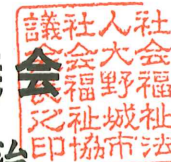 会
社会福祉法
人大野城市
社会福祉協
議会会長之印